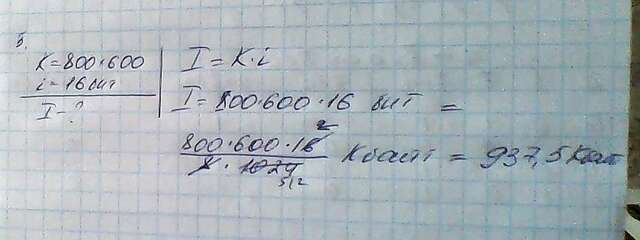 5.
K=800·600
i=16 бит
I-?
I=K·i
I=800·600·16 бит =
800·600·16 2
8·1024 512
Кбайт = 937,5 Кбайт